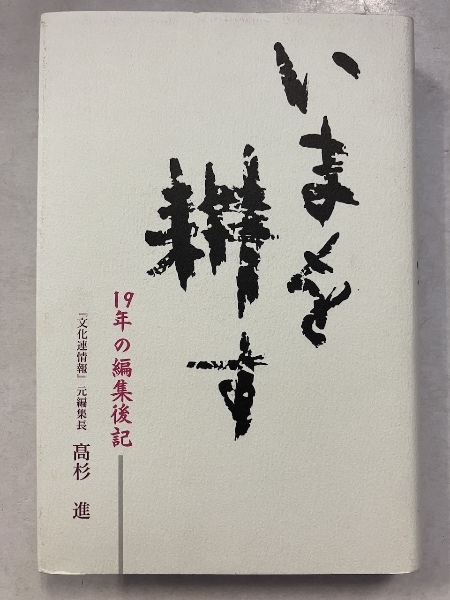 いまを
耕す
19年の編集後記
『文化連情報』元編集長 髙杉 進